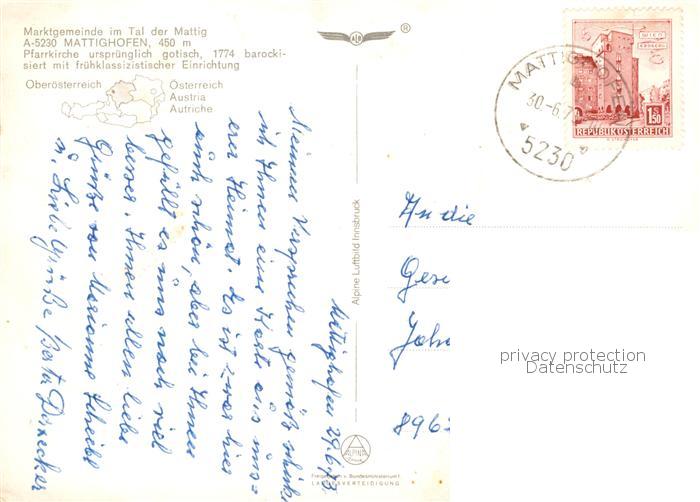 Marktgemeinde im Tal der Mattig
A-5230 MATTIGHOFEN, 450 m
Pfarrkirche ursprünglich gotisch, 1774 barocki-
siert mit frühklassizistischer Einrichtung
Oberösterreich
Österreich
Austria
Autriche
®
Mattighofen 29.6.73
Meinem Versprechen gemäß schicke
ich Ihnen eine Karte aus uns=
erer Heimat. Es ist zwar hier
auch schön, aber bei Ihnen
gefällt es uns noch viel
besser. Ihnen allen liebe
Grüße von Marianne Scheibl
u. Liebe Grüße Berta
Alpine Luftbild Innsbruck
ALPINE
Freigegeben v. Bundesministerium f.
LANDESVERTEIDIGUNG
MATTIGHOFEN
30.-6.7
5230
WIEN
1.50
REPUBLIK ÖSTERREICH
An die
Joh
896
privacy protection
Datenschutz